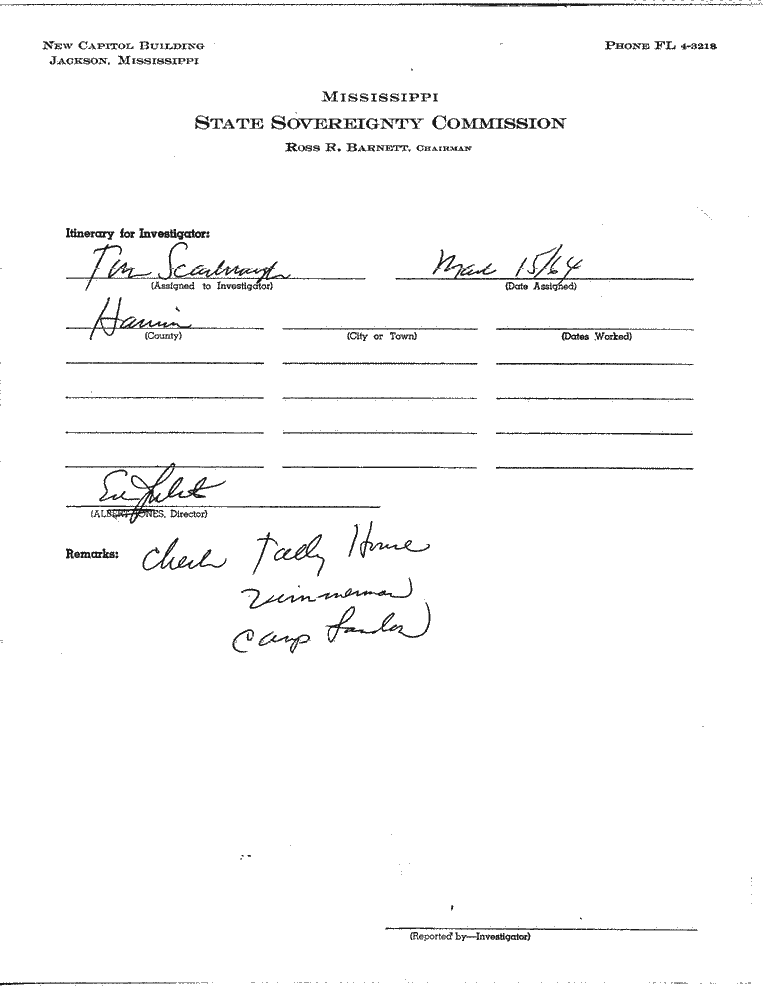 NEW CAPITOL BUILDING
JACKSON, MISSISSIPPI
PHONE FL 4-3218
MISSISSIPPI
STATE SOVEREIGNTY COMMISSION
ROSS R. BARNETT, CHAIRMAN
Itinerary for Investigator:
Tom Scarbrough
Mar 15/64
(Assigned to Investigator)
(Date Assigned)
(County)
(City or Town)
(Dates Worked)
(ALBERT JONES, Director)
Remarks: Check Tally House
Zimmerman
Camp Landon
(Reported by—Investigator)